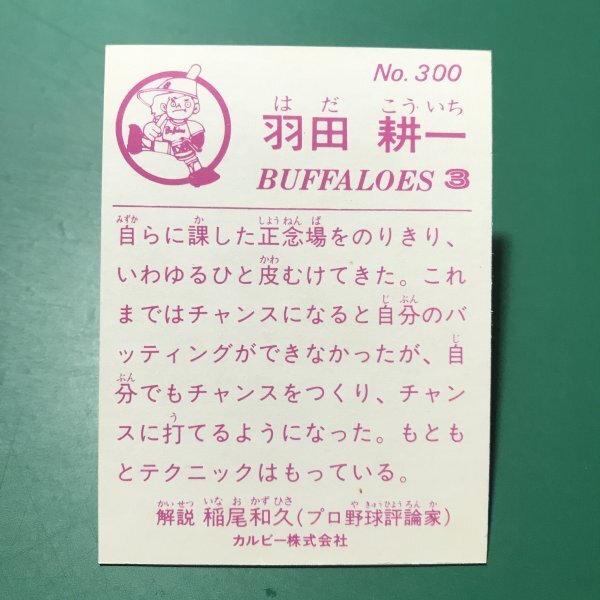 No. 300
はだ こういち
羽田 耕一
BUFFALOES 3
みずか か しょうねんば
自らに課した正念場をのりきり、
かわ
いわゆるひと皮むけてきた。これ
じぶん
まではチャンスになると自分のバ
じ
ッティングができなかったが、自
ぶん
分でもチャンスをつくり、チャン
う
スに打てるようになった。もとも
とテクニックはもっている。
かいせつ いなおかずひさ やきゅうひょうろんか
解説 稲尾和久(プロ野球評論家)
カルビー株式会社